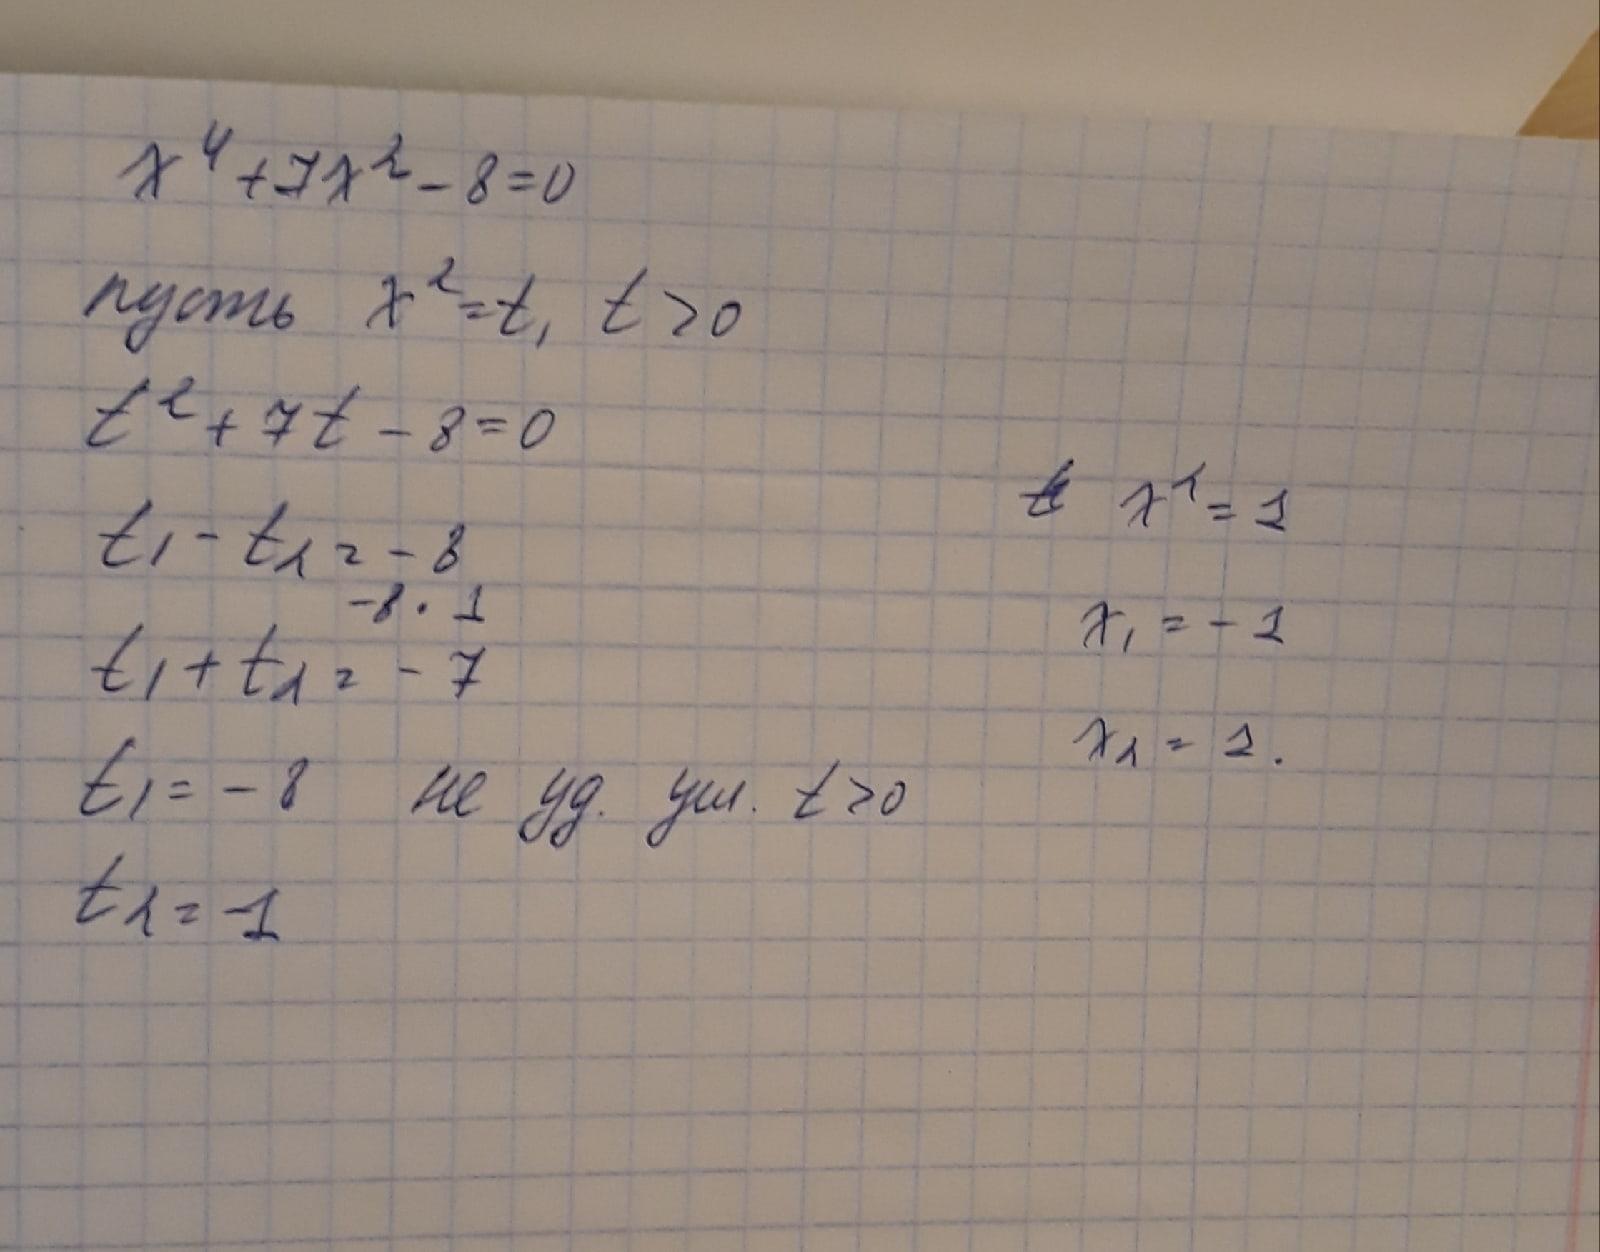 x⁴+7x²-8=0
пусть x²=t, t>0
t²+7t-8=0
t₁-t₂=-8
-8·1
t₁+t₂=-7
t₁=-8 не уд. усл. t>0
t₂=-1
x²=1
x₁=-1
x₂=1.